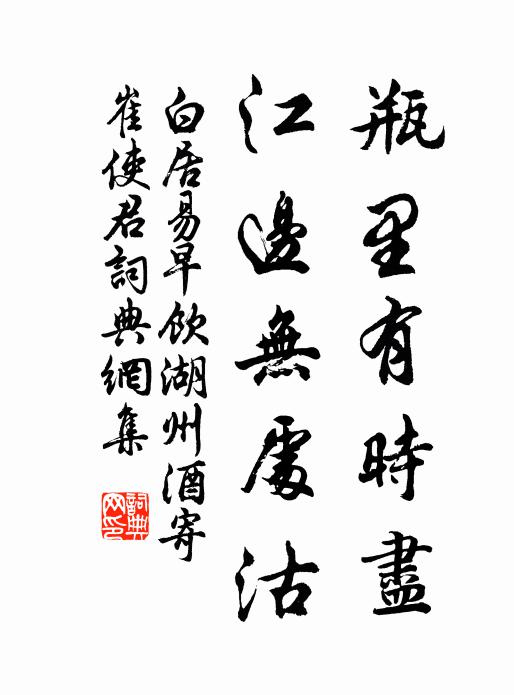 瓶里有時盡
江邊無處沽
白居易早飲湖州酒寄
崔使君詞典網集
詞典
网印